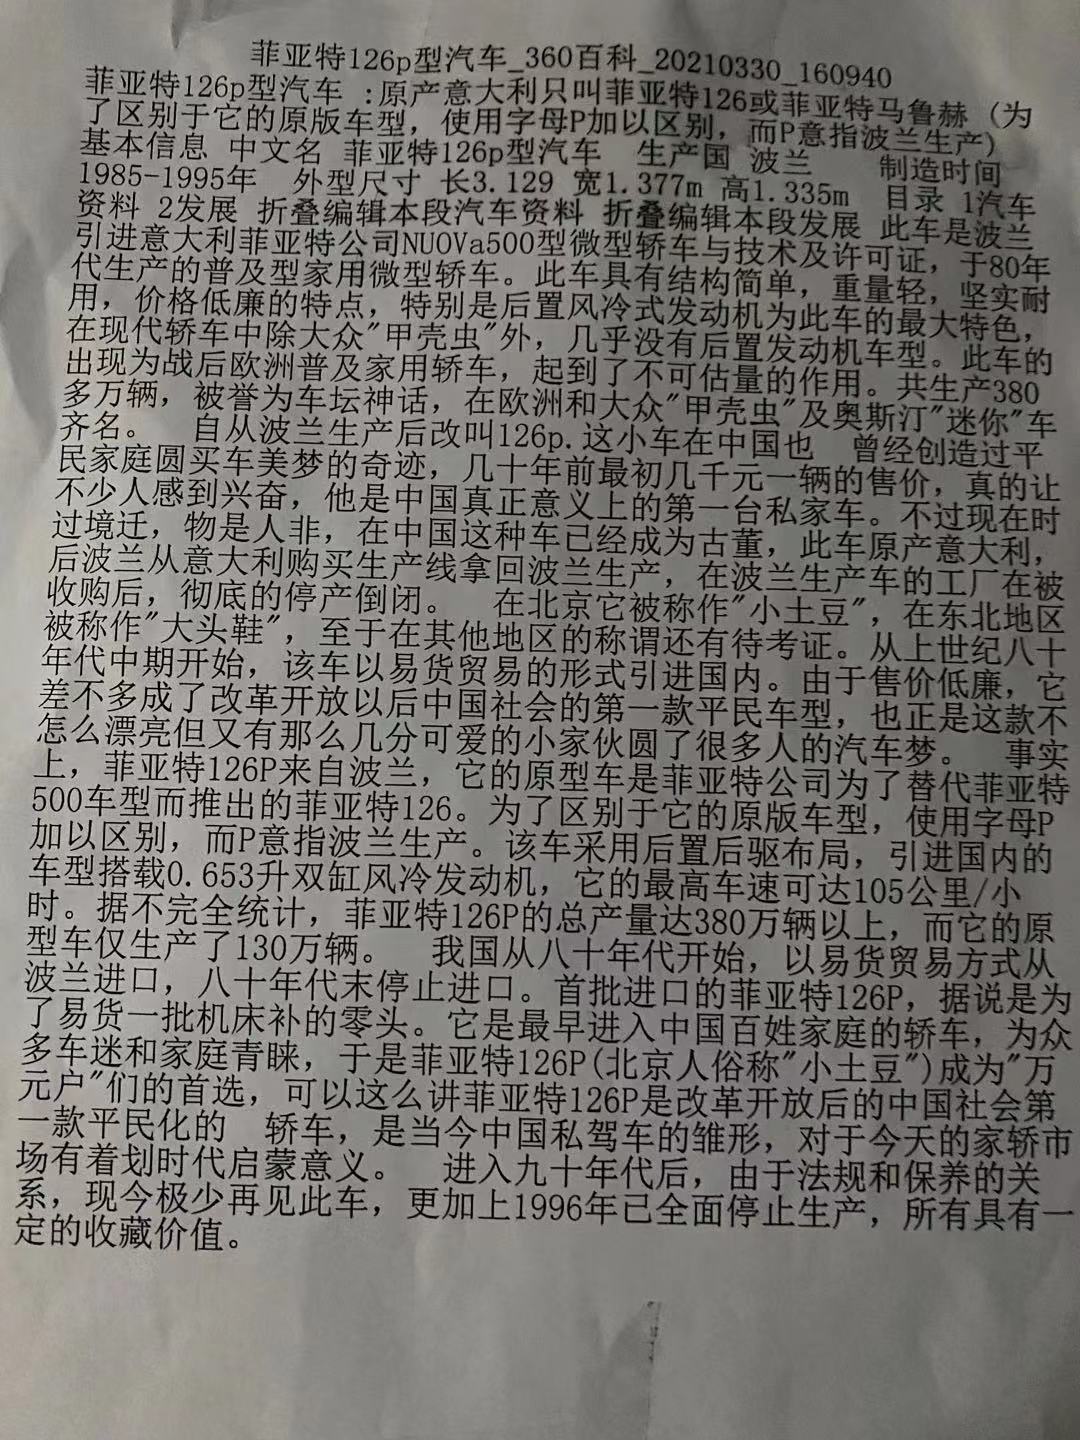 菲亚特126p型汽车_360百科_20210330_160940
菲亚特126p型汽车 :原产意大利只叫菲亚特126或菲亚特马鲁赫 (为
了区别于它的原版车型，使用字母P加以区别，而P意指波兰生产)
基本信息 中文名 菲亚特126p型汽车 生产国 波兰 制造时间
1985-1995年 外型尺寸 长3.129 宽1.377m 高1.335m 目录 1汽车
资料 2发展 折叠编辑本段汽车资料 折叠编辑本段发展 此车是波兰
引进意大利菲亚特公司NUOVa500型微型轿车与技术及许可证，于80年
代生产的普及型家用微型轿车。此车具有结构简单，重量轻，坚实耐
用，价格低廉的特点，特别是后置风冷式发动机为此车的最大特色，
在现代轿车中除大众"甲壳虫"外，几乎没有后置发动机车型。此车的
出现为战后欧洲普及家用轿车，起到了不可估量的作用。共生产380
多万辆，被誉为车坛神话，在欧洲和大众"甲壳虫"及奥斯汀"迷你"车
齐名。 自从波兰生产后改叫126p.这小车在中国也 曾经创造过平
民家庭圆买车美梦的奇迹，几十年前最初几千元一辆的售价，真的让
不少人感到兴奋，他是中国真正意义上的第一台私家车。不过现在时
过境迁，物是人非，在中国这种车已经成为古董，此车原产意大利，
后波兰从意大利购买生产线拿回波兰生产，在波兰生产车的工厂在被
收购后，彻底的停产倒闭。 在北京它被称作"小土豆"，在东北地区
被称作"大头鞋"，至于在其他地区的称谓还有待考证。从上世纪八十
年代中期开始，该车以易货贸易的形式引进国内。由于售价低廉，它
差不多成了改革开放以后中国社会的第一款平民车型，也正是这款不
怎么漂亮但又有那么几分可爱的小家伙圆了很多人的汽车梦。 事实
上，菲亚特126P来自波兰，它的原型车是菲亚特公司为了替代菲亚特
500车型而推出的菲亚特126。为了区别于它的原版车型，使用字母P
加以区别，而P意指波兰生产。该车采用后置后驱布局，引进国内的
车型搭载0.653升双缸风冷发动机，它的最高车速可达105公里/小
时。据不完全统计，菲亚特126P的总产量达380万辆以上，而它的原
型车仅生产了130万辆。 我国从八十年代开始，以易货贸易方式从
波兰进口，八十年代末停止进口。首批进口的菲亚特126P，据说是为
了易货一批机床补的零头。它是最早进入中国百姓家庭的轿车，为众
多车迷和家庭青睐，于是菲亚特126P(北京人俗称"小土豆")成为"万
元户"们的首选，可以这么讲菲亚特126P是改革开放后的中国社会第
一款平民化的 轿车，是当今中国私驾车的雏形，对于今天的家轿市
场有着划时代启蒙意义。 进入九十年代后，由于法规和保养的关
系，现今极少再见此车，更加上1996年已全面停止生产，所有具有一
定的收藏价值。